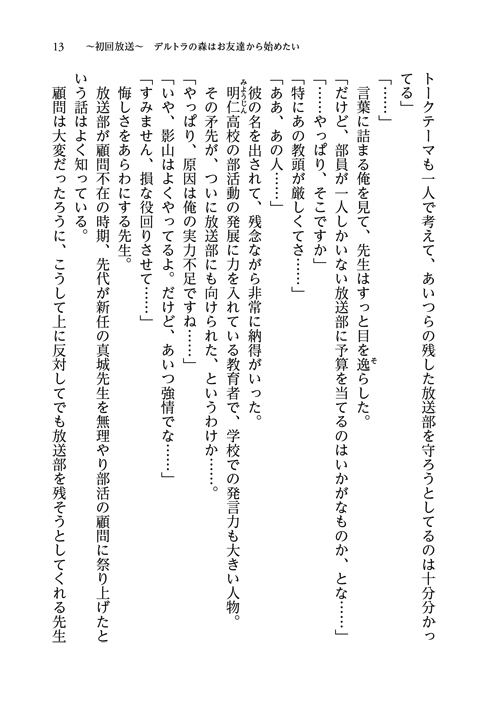 13　～初回放送～　デルトラの森はお友達から始めたい
トークテーマも一人で考えて、あいつらの残した放送部を守ろうとしてるのは十分分かっ
てる」
「……」
言葉に詰まる俺を見て、先生はすっと目を逸らした。
「だけど、部員が一人しかいない放送部に予算を当てるのはいかがなものか、とな……」
「……やっぱり、そこですか」
「特にあの教頭が厳しくてさ……」
「ああ、あの人……」
彼の名を出されて、残念ながら非常に納得がいった。
明仁高校の部活動の発展に力を入れている教育者で、学校での発言力も大きい人物。
その矛先が、ついに放送部にも向けられた、というわけか……。
「やっぱり、原因は俺の実力不足ですね……」
「いや、影山はよくやってるよ。だけど、あいつ強情でな……」
「すみません、損な役回りさせて……」
悔しさをあらわにする先生。
放送部が顧問不在の時期、先代が新任の真城先生を無理やり部活の顧問に祭り上げたと
いう話はよく知っている。
顧問は大変だったろうに、こうして上に反対してでも放送部を残そうとしてくれる先生